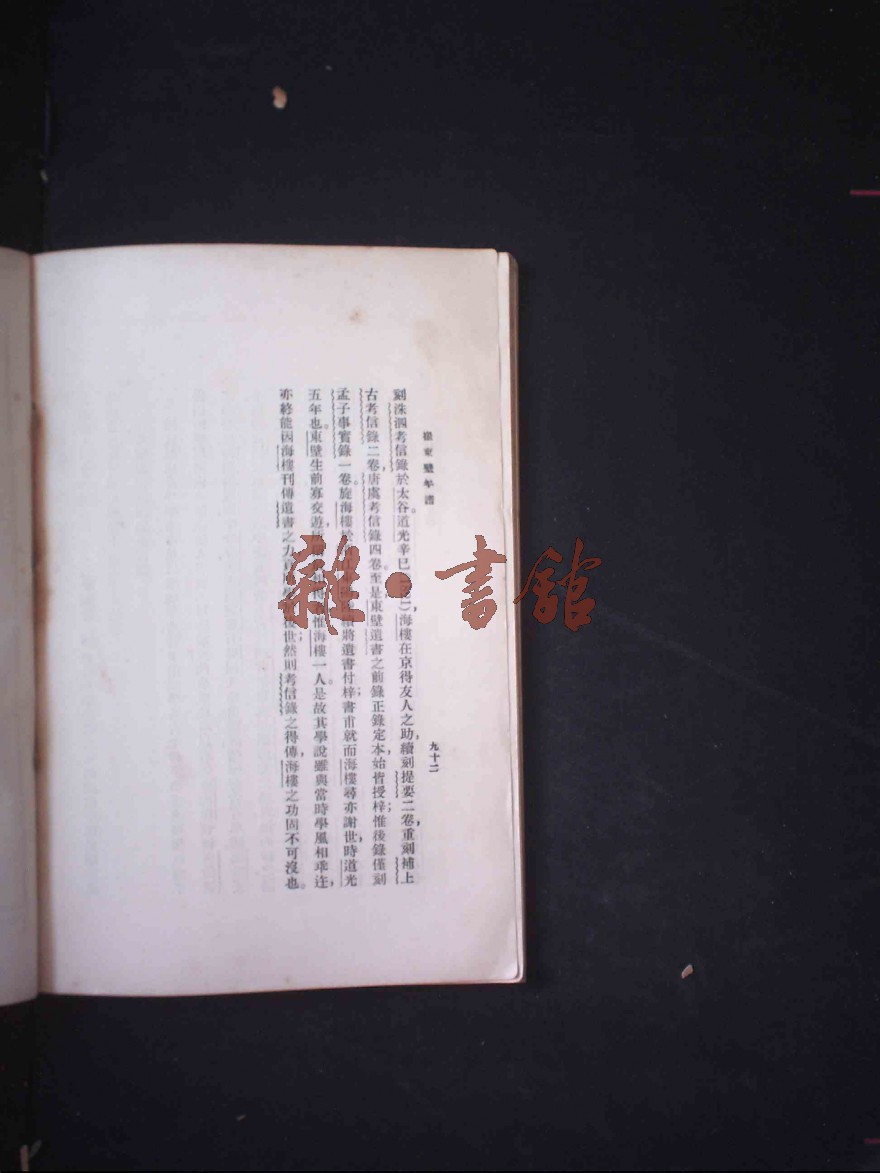 崔東壁年譜
九十二
刻洙泗考信錄於太谷。道光辛巳)海樓在京得友人之助,續刻提要二卷,重刻補上
古考信錄二卷,唐虞考信錄四卷。至是東壁遺書之前錄正錄定本,始皆授梓;惟後錄僅刻
孟子事實錄一卷。旋海樓將遺書付梓;書甫就而海樓尋亦謝世,時道光
五年也。東壁生前寡交遊,惟海樓一人。是故其學說雖與當時學風相乖迕,
亦終能因海樓刊傳遺書之力,後世;然則考信錄之得傳,海樓之功固不可沒也。
雜·書館